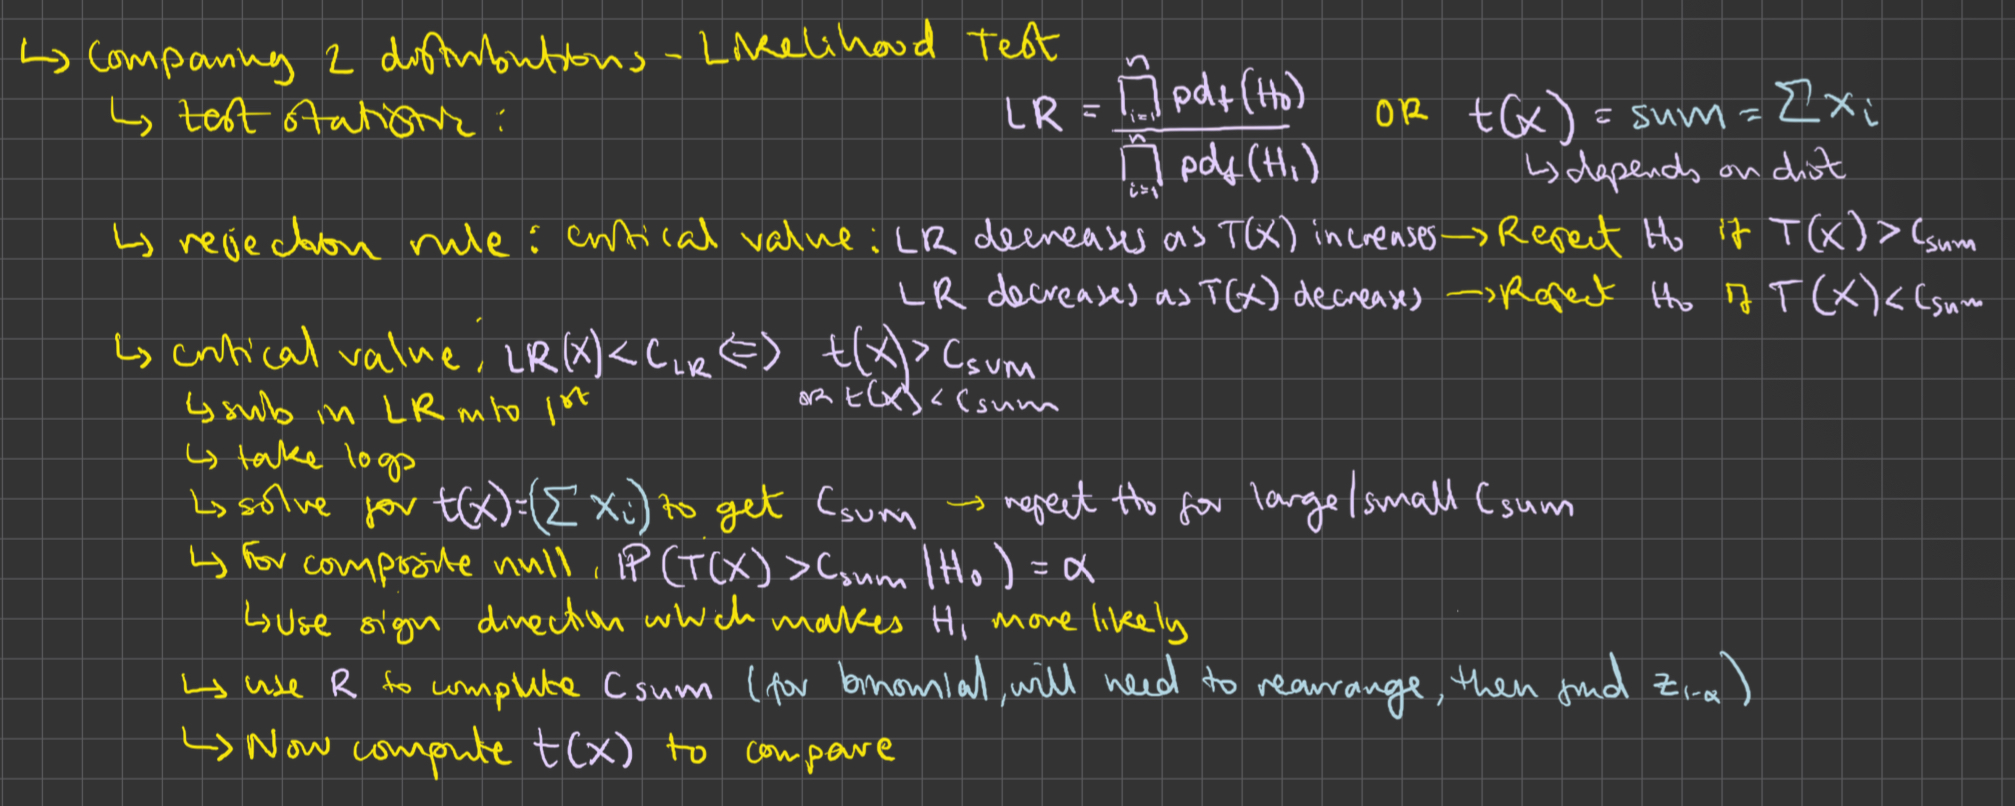 ↳ Comparing 2 distributions - Likelihood Test
↳ test statistic : LR = ∏_{i=1}^{n} pdf(H₀) / ∏_{i=1}^{n} pdf(H₁) OR t(x) = sum = Σxᵢ
↳ depends on dist
↳ rejection rule : critical value : LR decreases as T(X) increases → Reject H₀ if T(X) > C_sum
LR decreases as T(X) decreases → Reject H₀ if T(X) < C_sum
↳ critical value : LR(X) < C_LR ⟺ t(x) > C_sum
or t(x) < C_sum
↳ sub in LR into 1st
↳ take logs
↳ solve for t(x) = (Σxᵢ) to get C_sum → reject H₀ for large/small C_sum
↳ For composite null, ℙ(T(X) > C_sum | H₀) = α
↳ Use sign direction which makes H₁ more likely
↳ use R to compute C_sum (for binomial, will need to rearrange, then find z_{1-α})
↳ Now compute t(x) to compare